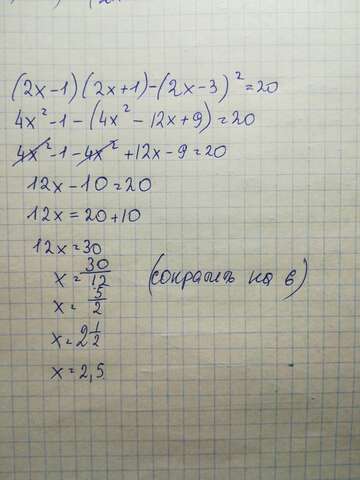 (2x-1)(2x+1)-(2x-3)²=20
4x²-1-(4x²-12x+9)=20
4x²-1-4x²+12x-9=20
12x-10=20
12x=20+10
12x=30
x=30/12 (сократить на 6)
x=5/2
x=2 1/2
x=2,5